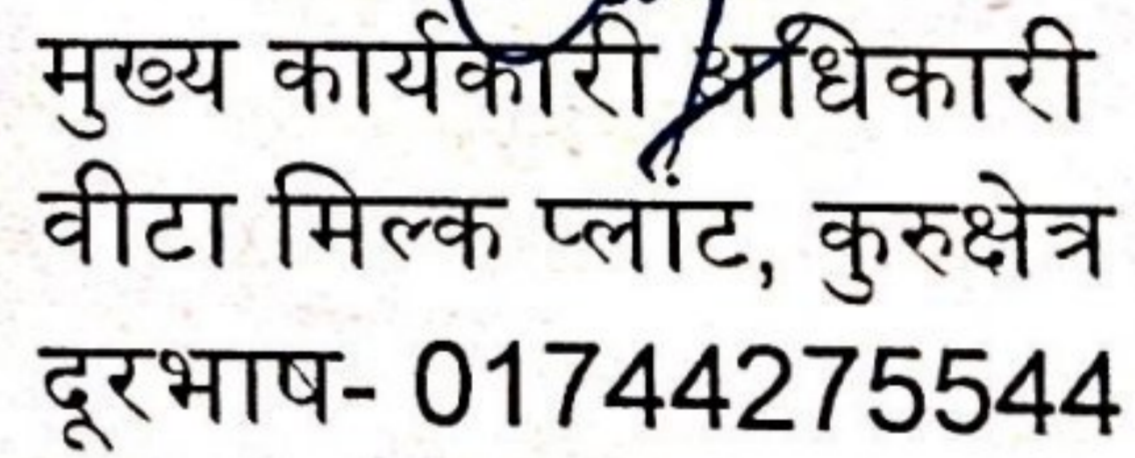 मुख्य कार्यकारी अधिकारी
वीटा मिल्क प्लांट, कुरुक्षेत्र
दूरभाष- 01744275544